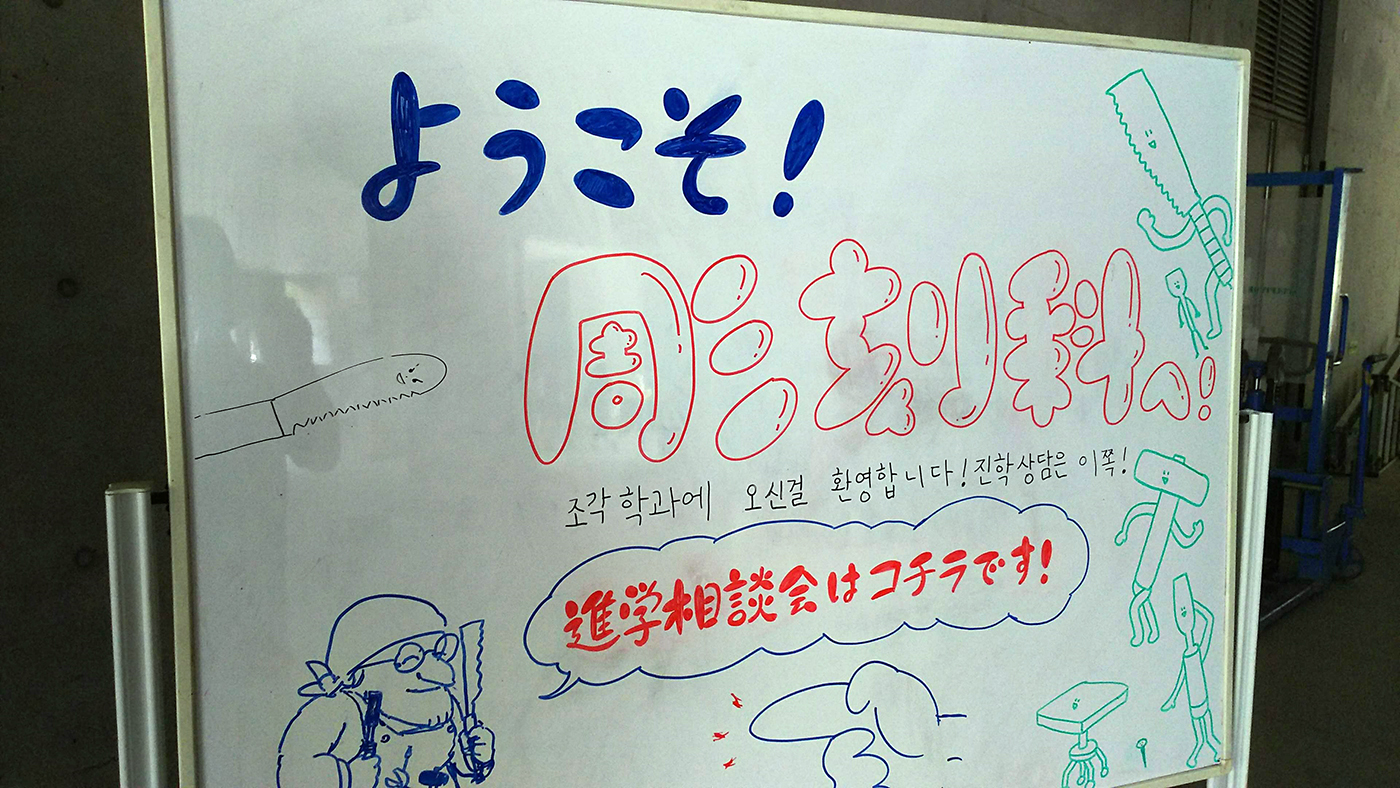 ようこそ!
彫刻科へ!
조각 학과에 오신걸 환영합니다! 진학상담은 이쪽!
進学相談会はコチラです!